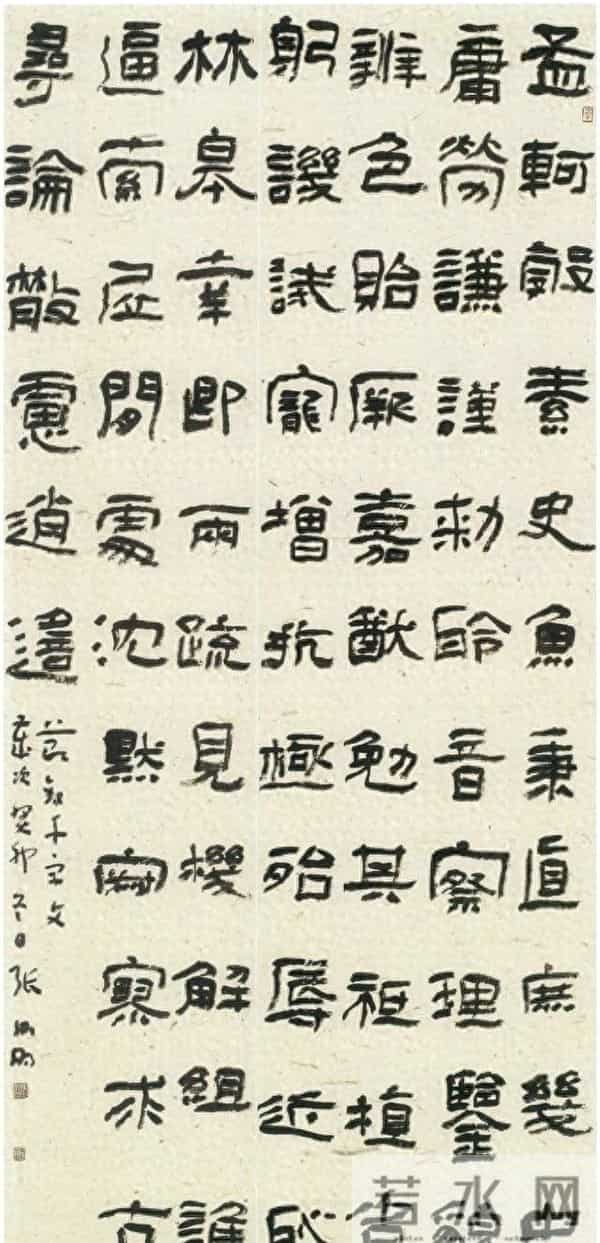 孟軻敦素史魚秉直庶幾中
庸勞謙謹敕聆音察理鑒貌
辨色貽厥嘉猷勉其祗植省
躬譏誡寵增抗極殆辱近恥
林皋幸即兩疏見機解組誰
逼索居閒處沈默寂寥求古
尋論散慮逍遙
節錄千字文
歲次癸卯冬日張
若水网